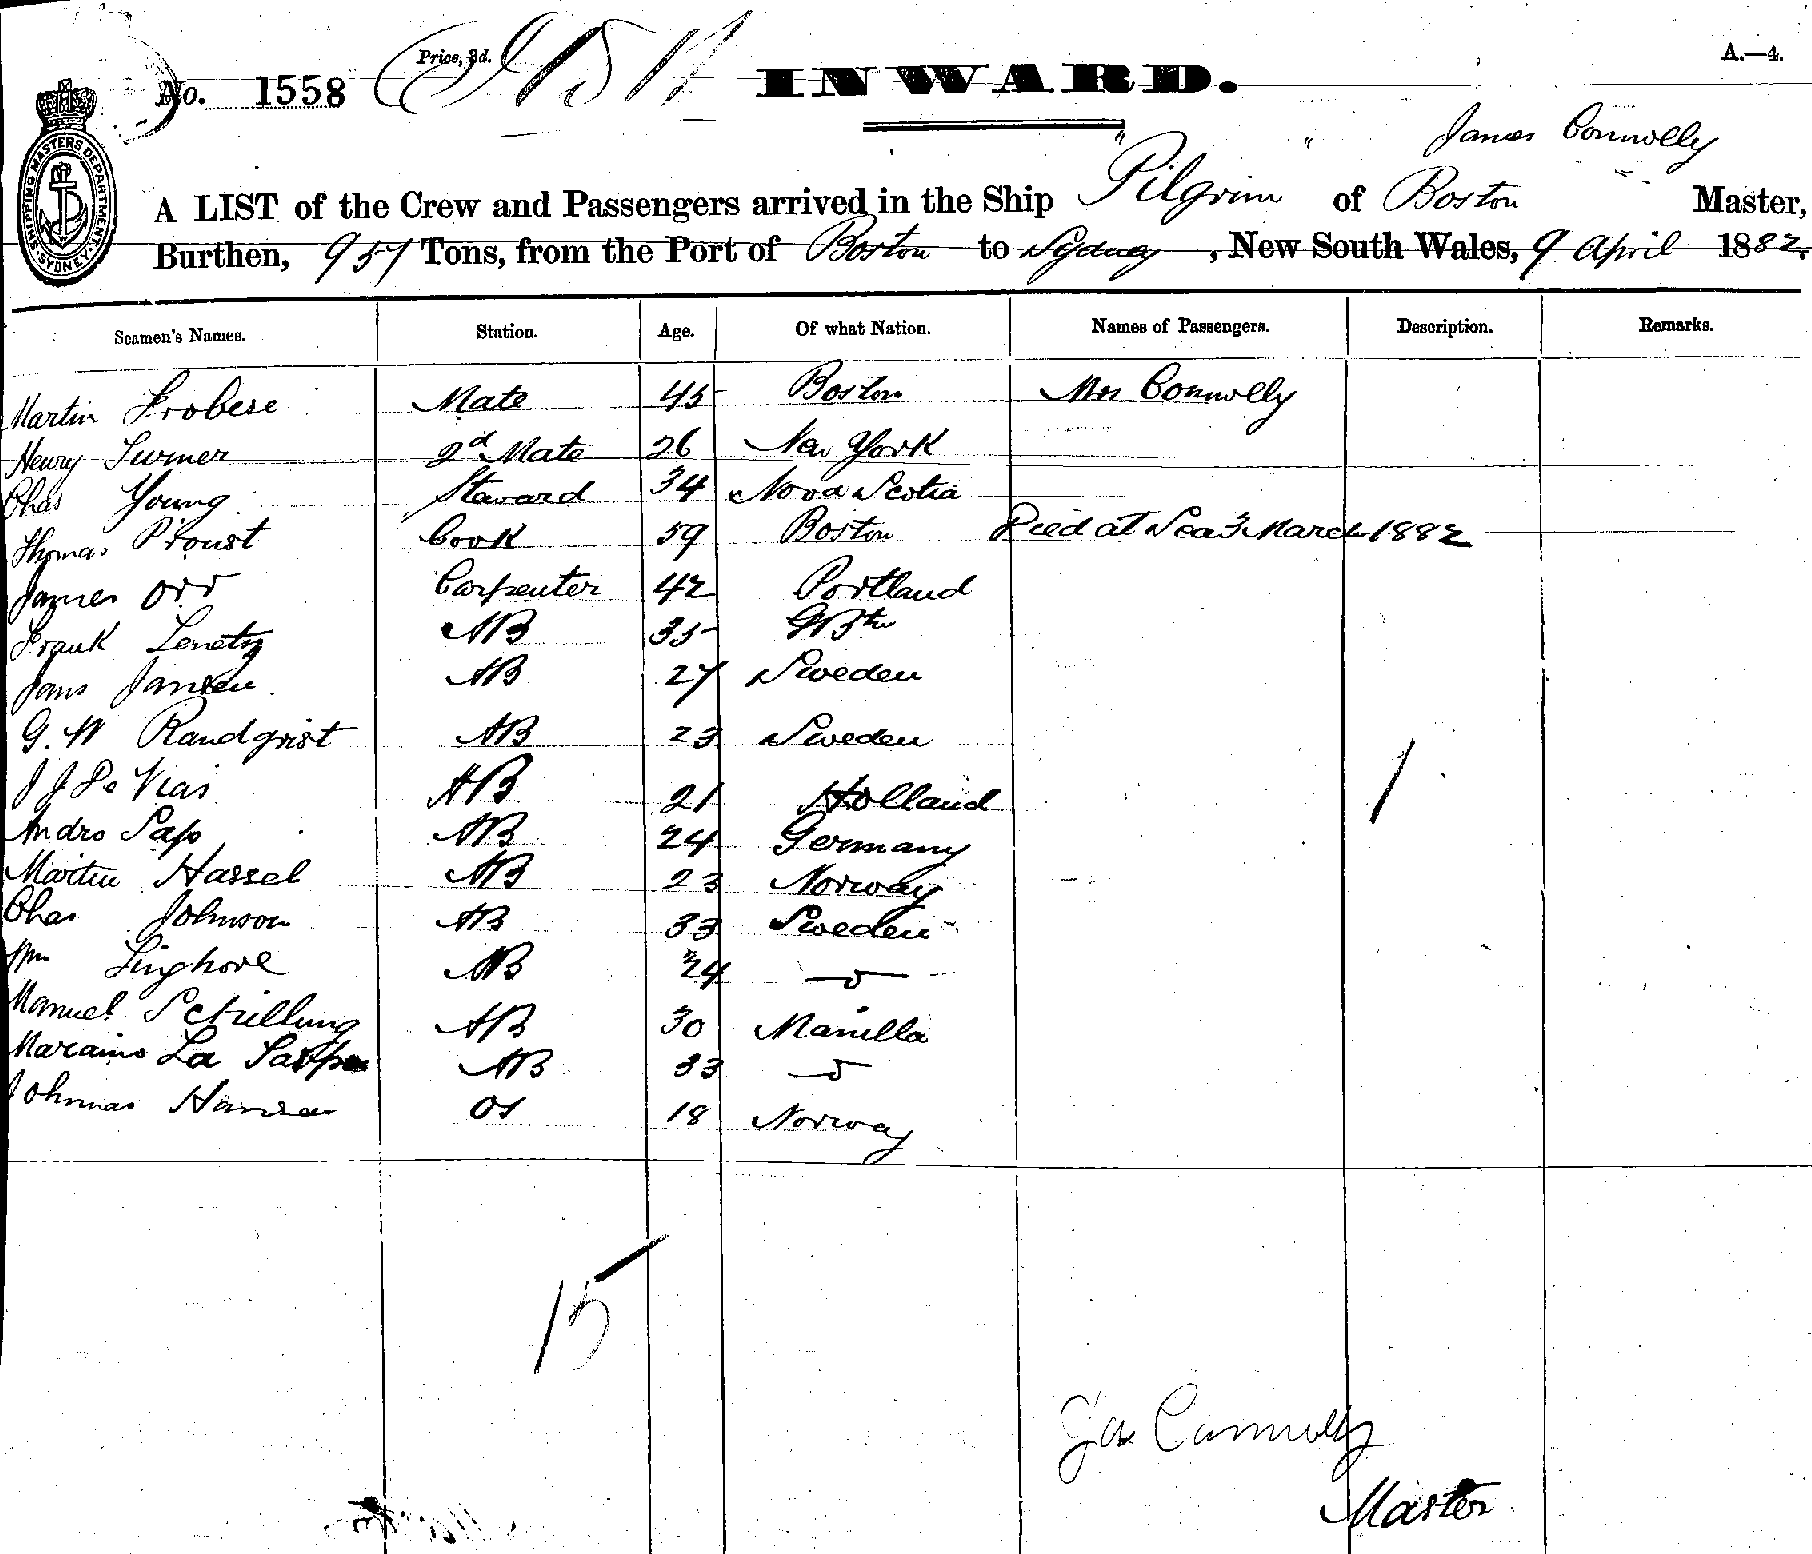 Price, 3d.
A.—4.
No. 1558
INWARD.
James Connolly
A LIST of the Crew and Passengers arrived in the Ship "Pilgrim" of Boston Master,
Burthen, 957 Tons, from the Port of Boston to Sydney, New South Wales, 9 April 1882.
SHIPPING MASTERS DEPARTMENT SYDNEY
Seamen's Names. Station. Age. Of what Nation. Names of Passengers. Description. Remarks.
Martin Frobese Mate 45 Boston Mrs Connolly
Henry Turner 2d Mate 26 New York
Chas Young Steward 34 Nova Scotia
Thomas Proust Cook 59 Boston Died at Sea 3 March 1882
James Orr Carpenter 42 Portland
Frank AB 35
Jans Jansen AB 27 Sweden
G. W Randqrist AB 23 Sweden
J J De Vias AB 21 Holland
Andro Pap AB 24 Germany
Martin Hassel AB 23 Norway
Chas Johnson AB 33 Sweden
Wm Linghorl AB 24 —o—
Manuel Schillung AB 30 Manilla
La AB 33 —o—
Hansen OS 18 Norway
1
15
Jas Connolly
Master